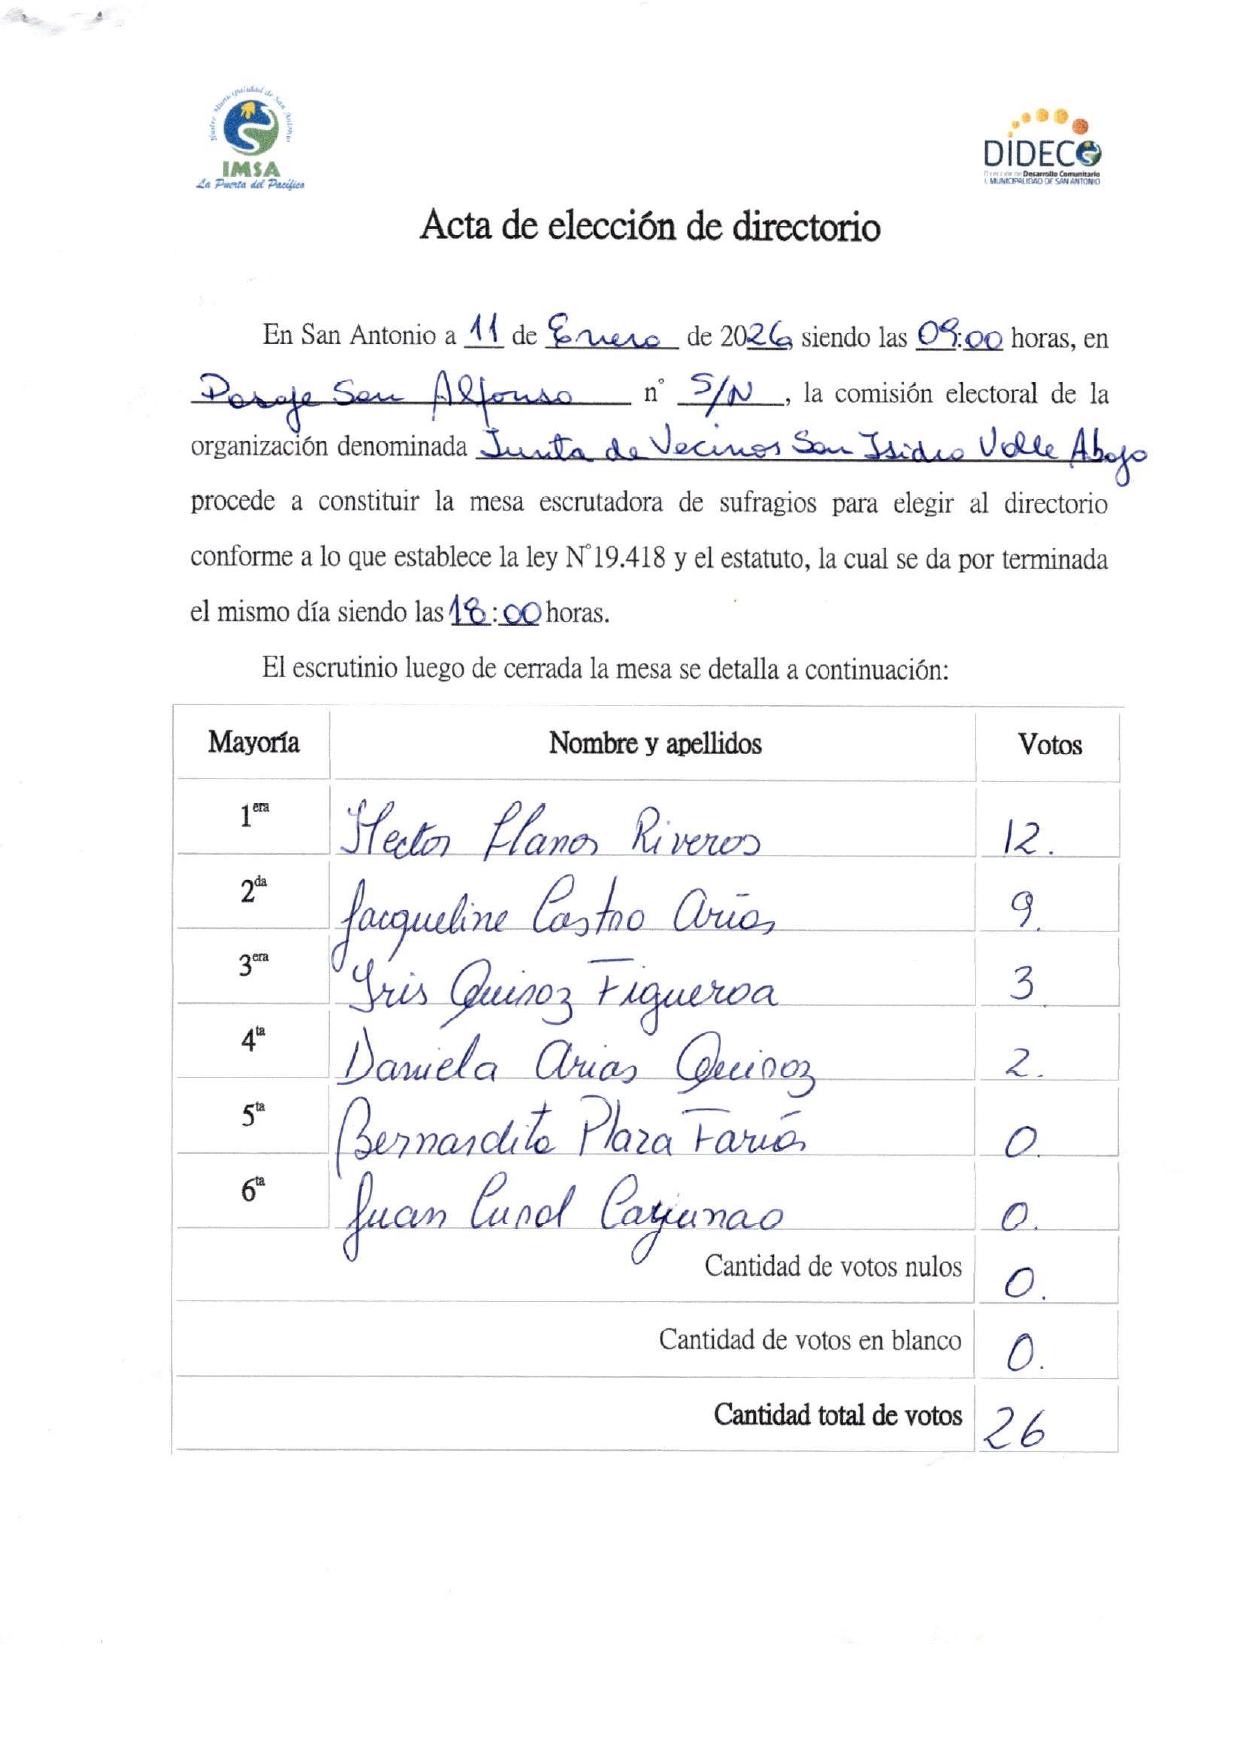 Ilustre Municipalidad de San Antonio
IMSA
La Puerta del Pacífico
DIDECO
Dirección de Desarrollo Comunitario
I. MUNICIPALIDAD DE SAN ANTONIO
Acta de elección de directorio
En San Antonio a 11 de Enero de 2026 siendo las 09:00 horas, en
Pasaje San Alfonso n° S/N, la comisión electoral de la
organización denominada Junta de Vecinos San Isidro Valle Abajo
procede a constituir la mesa escrutadora de sufragios para elegir al directorio
conforme a lo que establece la ley N°19.418 y el estatuto, la cual se da por terminada
el mismo día siendo las 18:00 horas.
El escrutinio luego de cerrada la mesa se detalla a continuación:
Mayoría Nombre y apellidos Votos
1era Hector Llanos Riveros 12.
2da Jacqueline Castro Arias 9.
3era Iris Quiroz Figueroa 3
4ta Daniela Arias Quiroz 2.
5ta Bernardita Plaza Farias 0.
6ta Juan 0.
Cantidad de votos nulos 0.
Cantidad de votos en blanco 0.
Cantidad total de votos 26